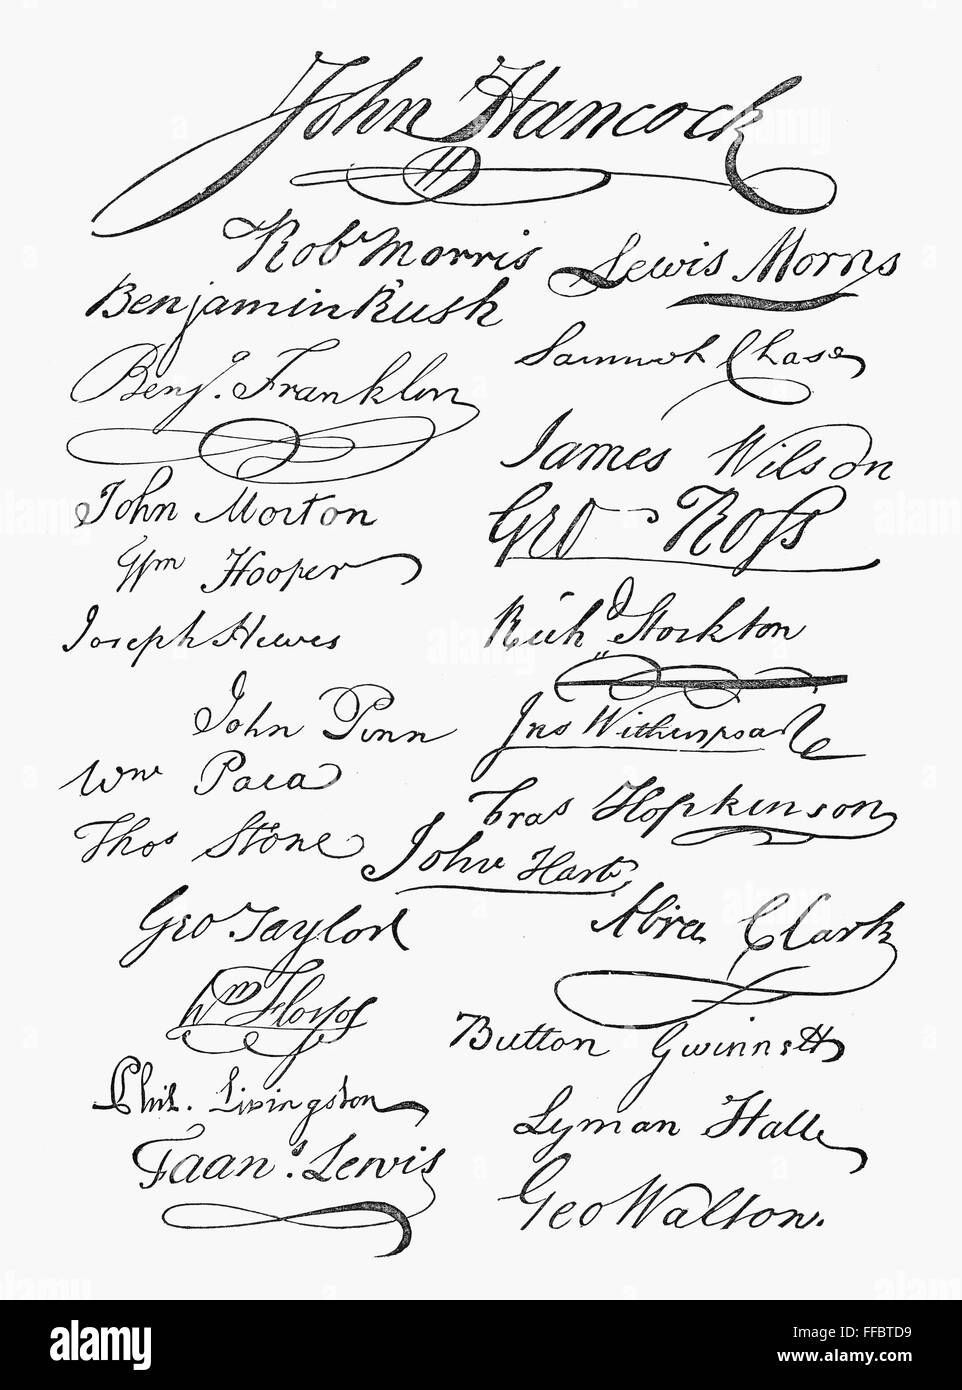 John Hancock
Robt Morris
Lewis Morris
Benjamin Rush
Benj. Franklin
Samuel Chase
James Wilson
John Morton
Geo Ross
Wm Hooper
Joseph Hewes
Richd Stockton
John Penn
Jno Witherspoon
Wm Paca
Fras Hopkinson
Thos Stone
John Hart
Geo Taylor
Abra Clark
Wm Floyd
Button Gwinnett
Phil. Livingston
Lyman Hall
Frans. Lewis
Geo Walton.
alamy
Image ID: FFBTD9
www.alamy.com